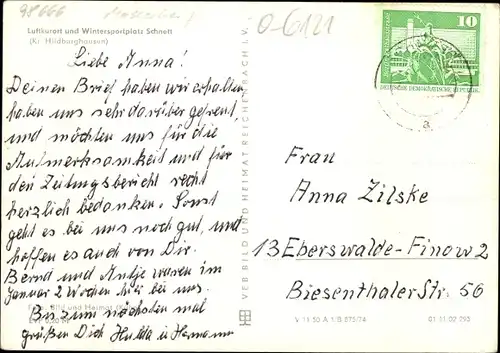 98666
0-6121
Luftkurort und Wintersportplatz Schnett
(Kr. Hildburghausen)
Liebe Anna!
Deinen Brief haben wir erhalten,
haben uns sehr darüber gefreut,
und möchten uns für die
Aufmerksamkeit und für
den Zeitungsbericht recht
herzlich bedanken. Sonst
geht es bei uns noch gut, und
hoffen es auch von Dir.
Bernd und Antje waren im
Januar 2 Wochen hier bei uns.
Bild und Heimat
Bis zum nächsten mal
grüßen Dich Hulda u Hermann
VEB BILD UND HEIMAT REICHENBACH I. V.
10
DEUTSCHE DEMOKRATISCHE REPUBLIK
a
Frau
Anna Zilske
13 Eberswalde-Finow 2
Biesenthaler Str. 56
V 11 50 A 1/B 875/74
01 11 02 293